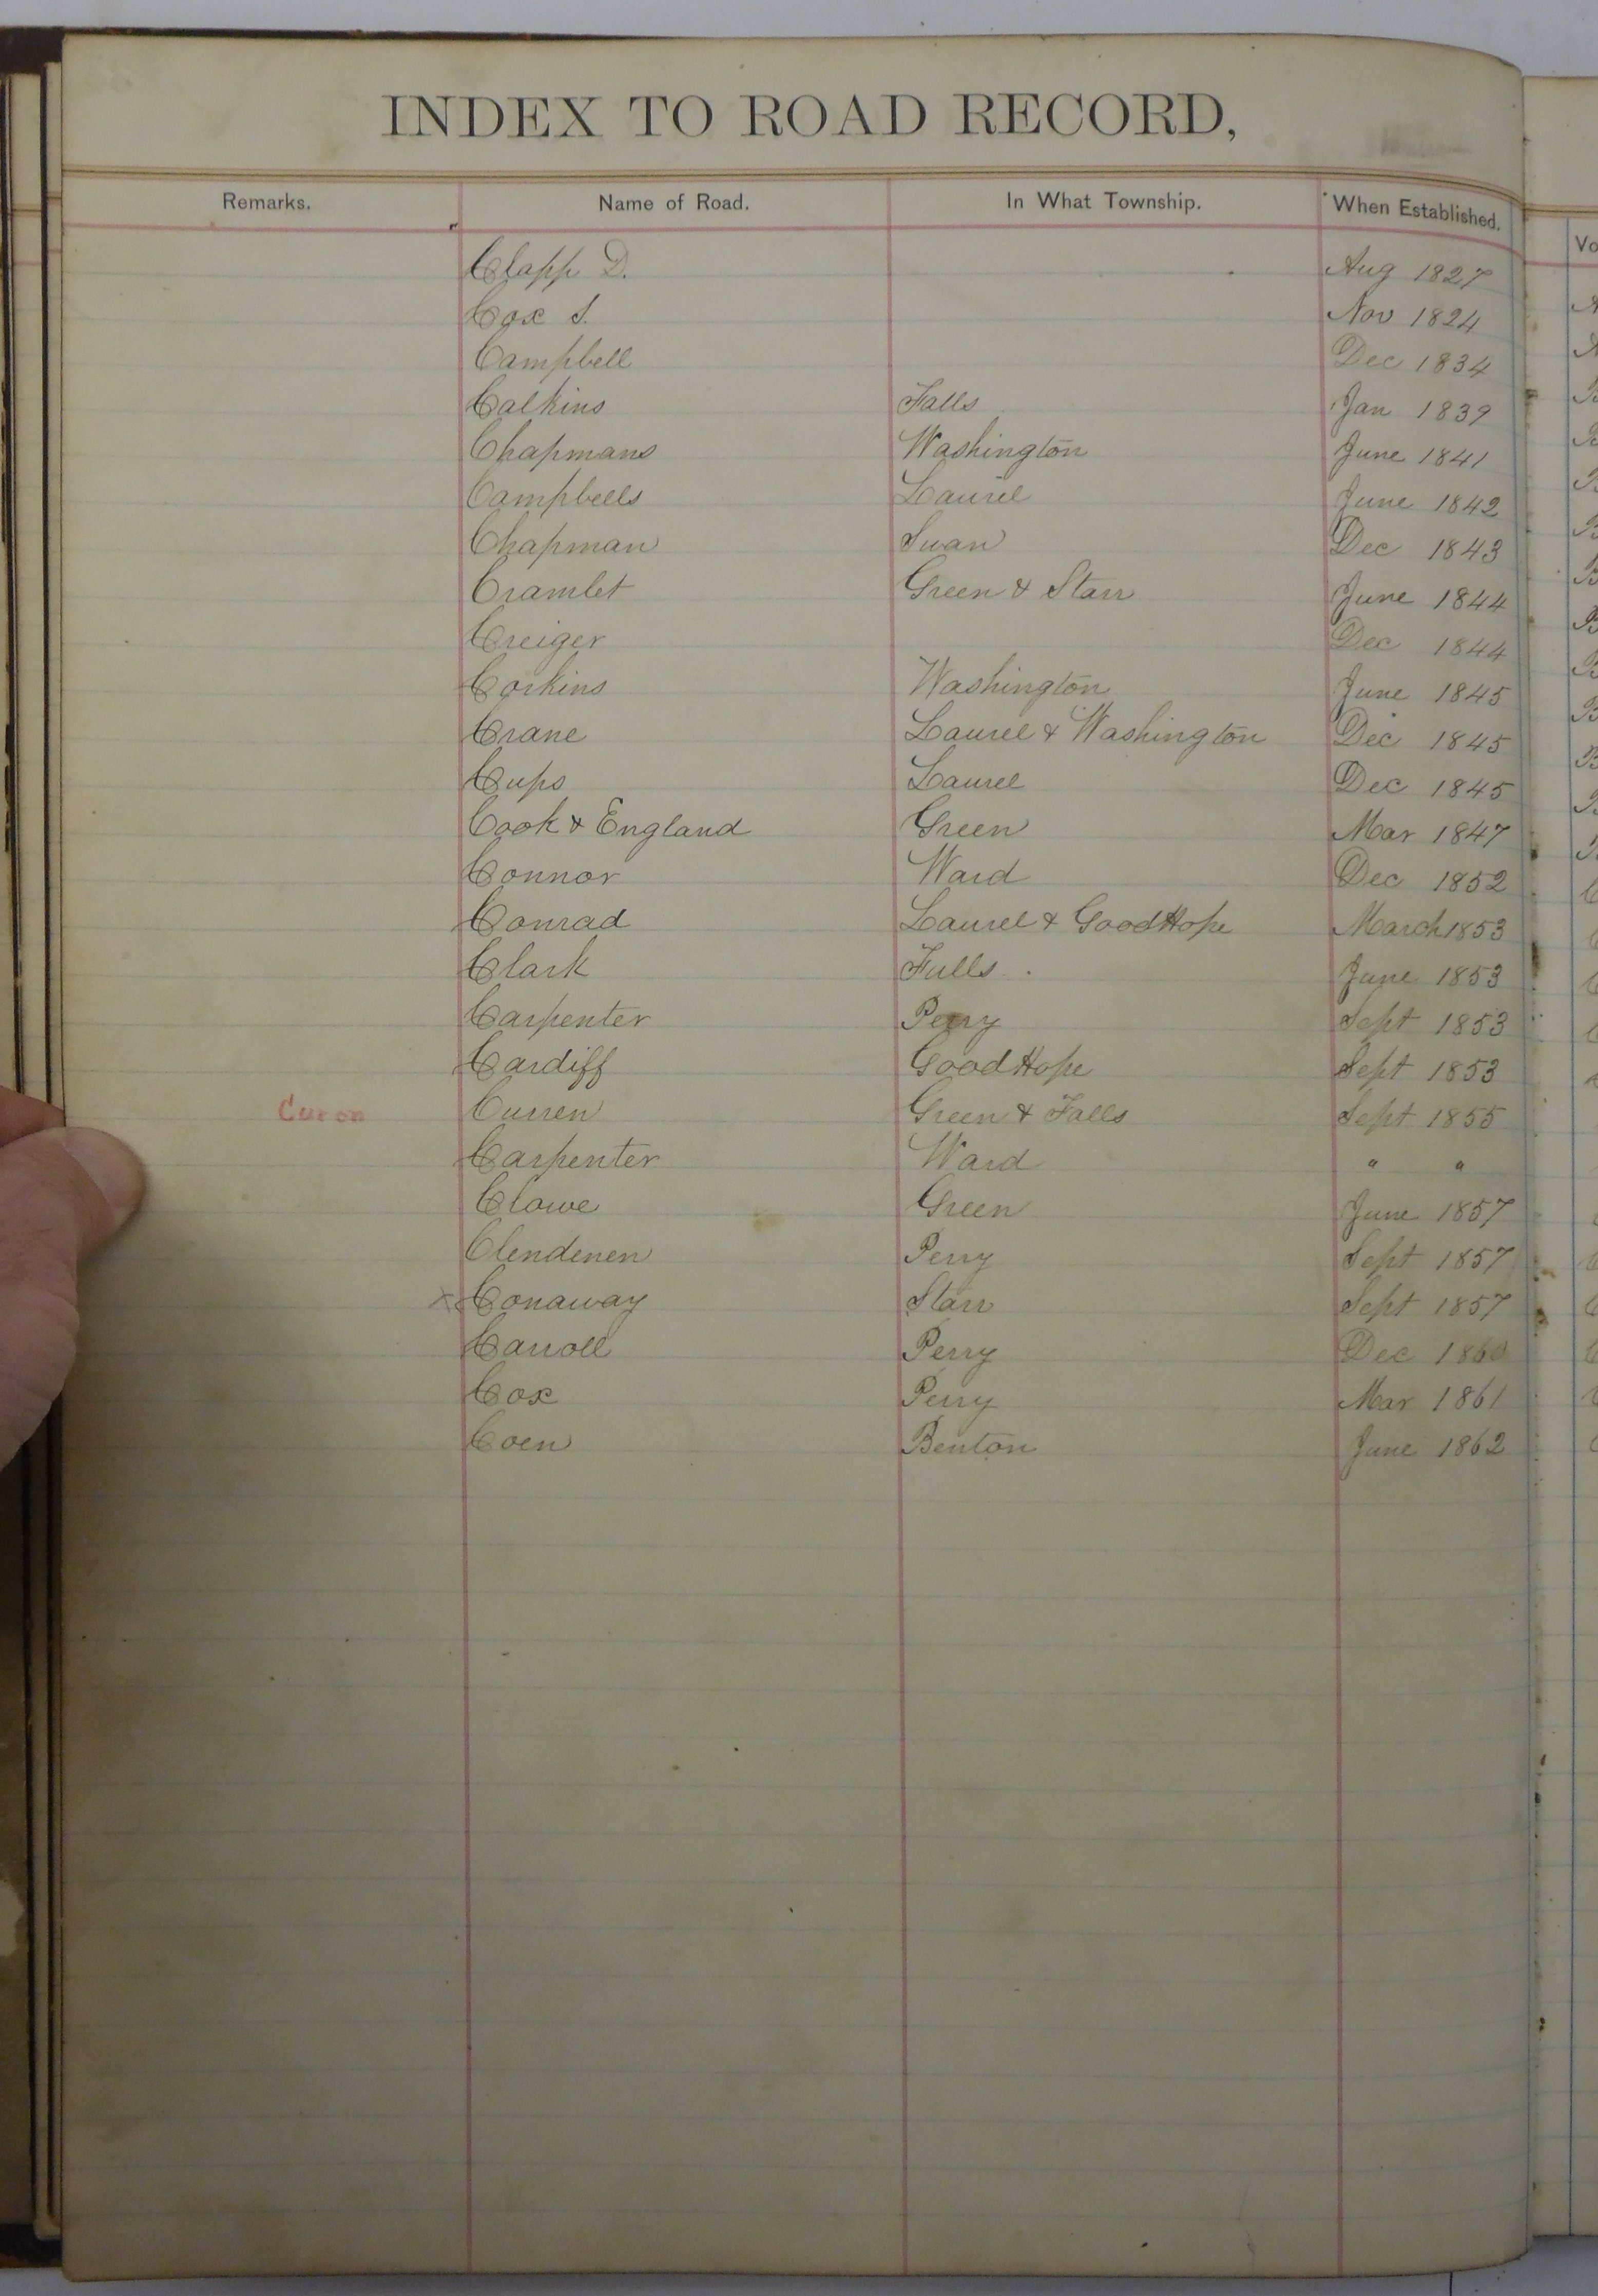 INDEX TO ROAD RECORD,
Remarks. Name of Road. In What Township. When Established.
Clapp D. Aug 1827
Cox S. Nov 1824
Campbell Dec 1834
Calkins Falls Jan 1839
Chapmans Washington June 1841
Campbells Laurel June 1842
Chapman Swan Dec 1843
Cramlet Green & Starr June 1844
Creiger Dec 1844
Corkins Washington June 1845
Crane Laurel & Washington Dec 1845
Cups Laurel Dec 1845
Cook & England Green Mar 1847
Connor Ward Dec 1852
Conrad Laurel & Good Hope March 1853
Clark Falls June 1853
Carpenter Perry Sept 1853
Cardiff Good Hope Sept 1853
Curren Green & Falls Sept 1855
Carpenter Ward " "
Clowe Green June 1857
Clendenen Perry Sept 1857
x Conaway Starr Sept 1857
Carroll Perry Dec 1860
Cox Perry Mar 1861
Coen Benton June 1862